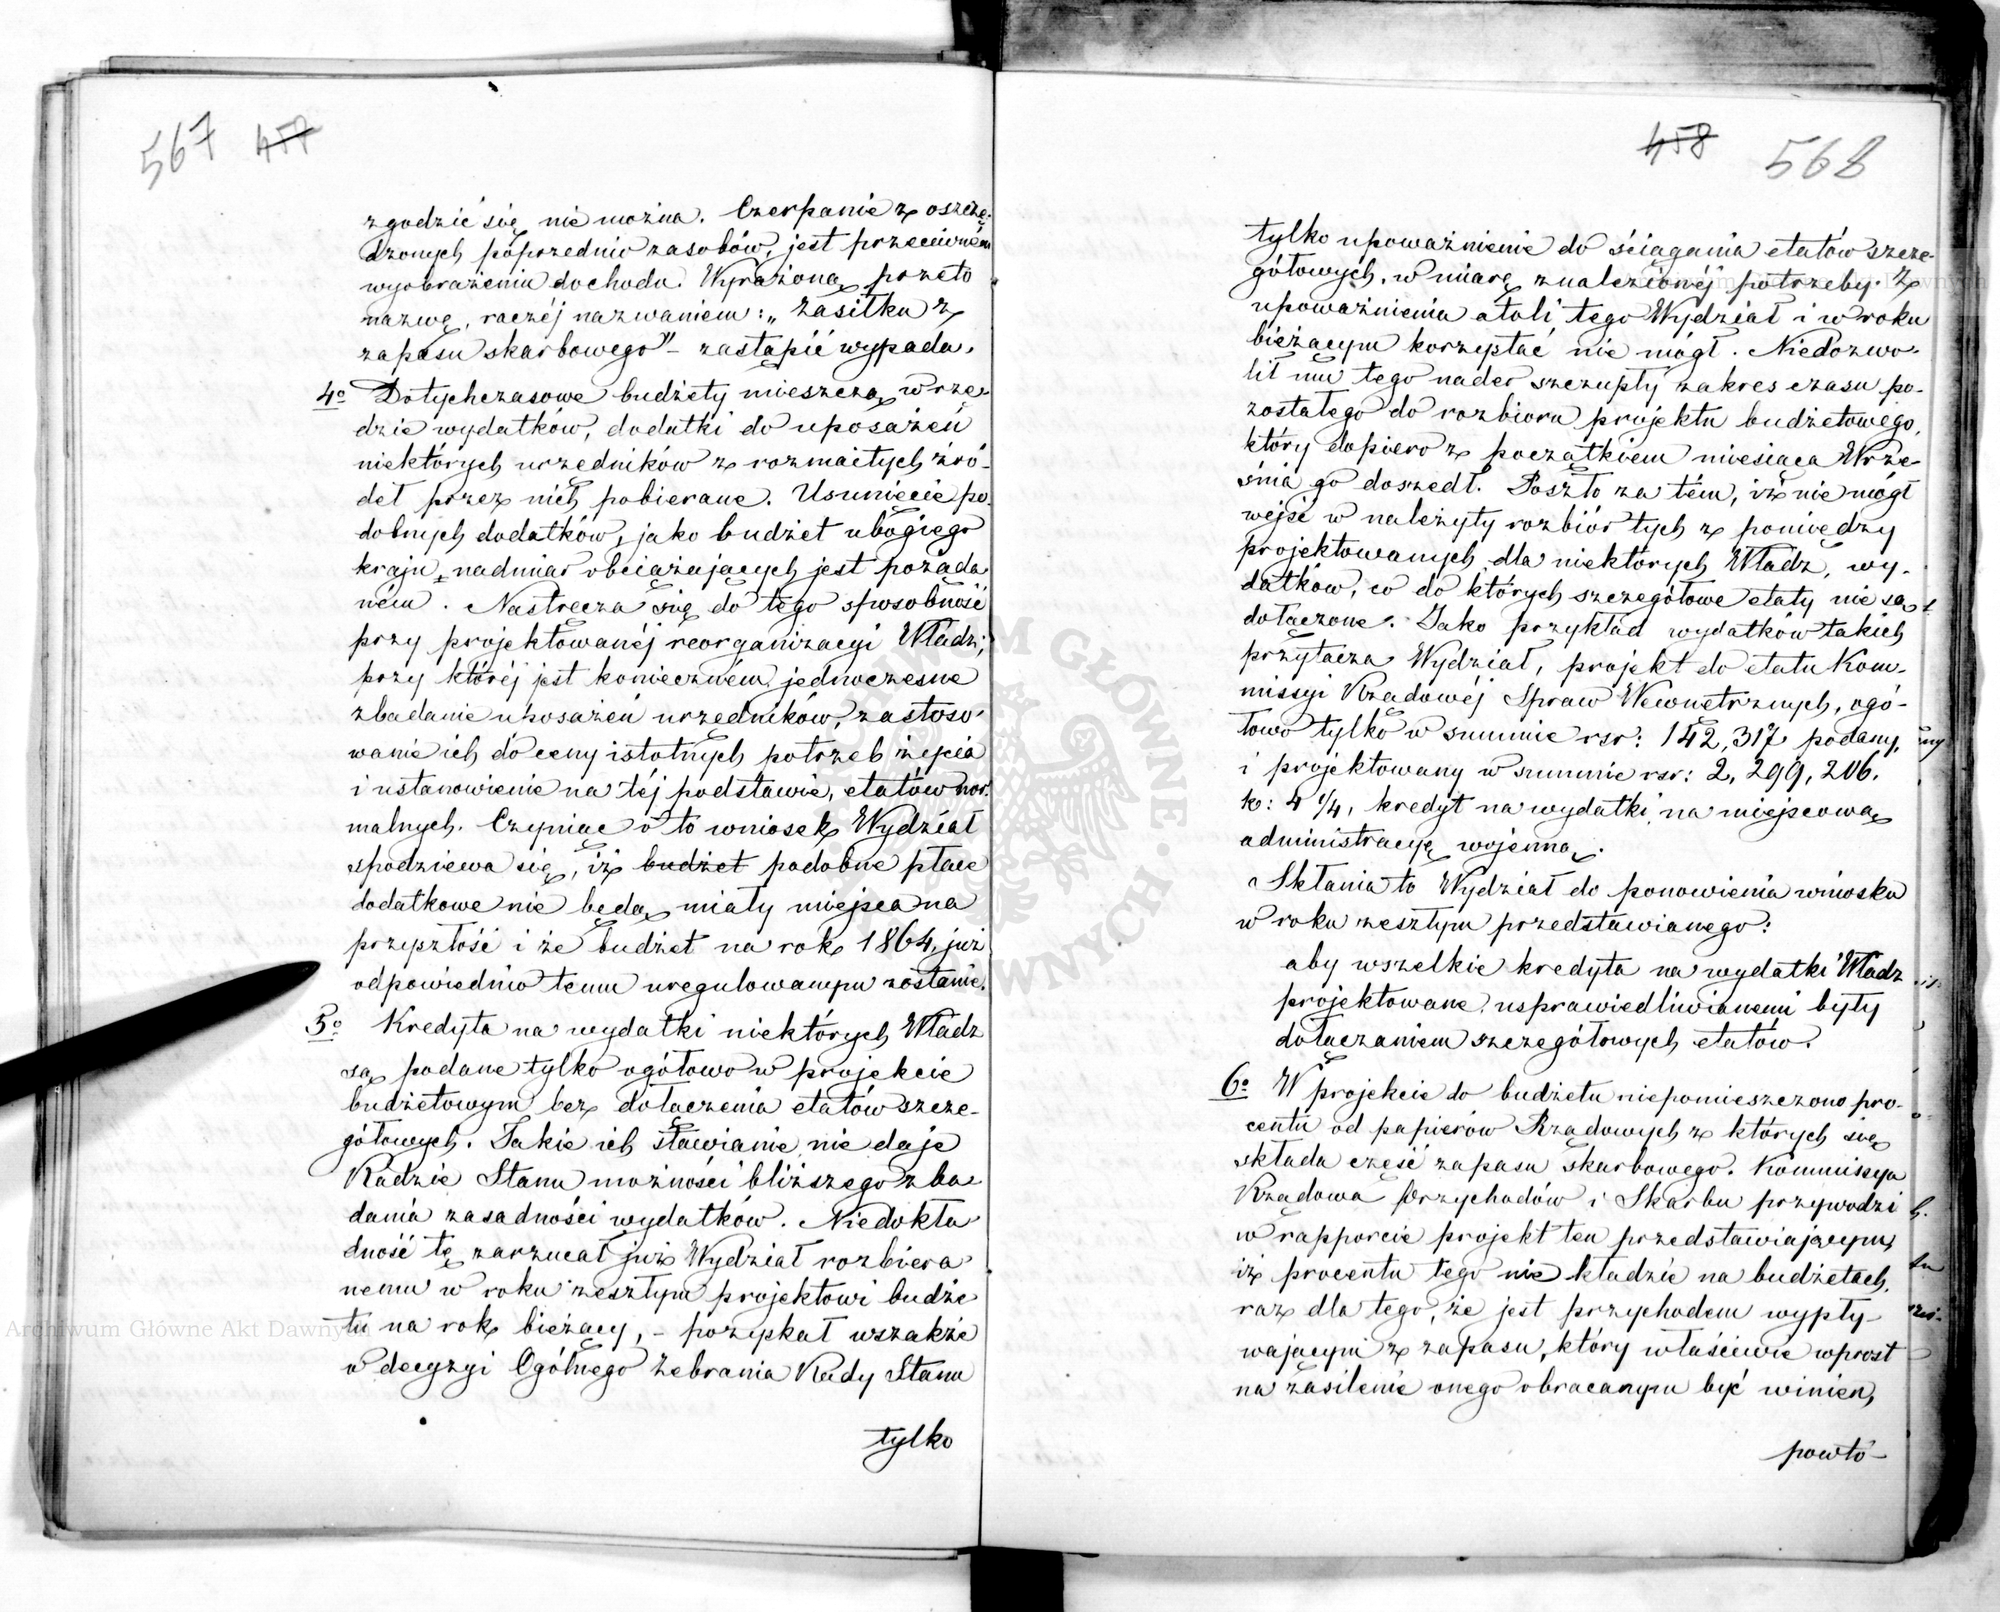 567 457
zgodzić się nie można. Czerpanie z oszczę-
dzonych poprzednio zasobów, jest przeciwném
wyobrażeniu dochodu. Wyrażoną przeto
nazwę, raczéj nazwaniem: „Zasiłku z
zapasu skarbowego" – zastąpić wypada.
4o Dotychczasowe budżety mieszczą w rzę-
dzie wydatków, dodatki do uposażeń
niektórych urzędników z rozmaitych źró-
deł przez nich pobierane. Usunięcie po-
dobnych dodatków, jako budżet ubogiego
kraju nadmiar obciążających jest pożąda-
ném. Nastręcza się do tego sposobność
przy projektowanéj reorganizacyi Władz;
przy któréj jest konieczném jednoczesne
zbadanie uposażeń urzędników, zastoso-
wanie ich do ceny istotnych potrzeb życia
i ustanowienie na téj podstawie, etatów nor-
malnych. Czyniąc o to wniosek Wydział
spodziewa się, iż budżet podobne płace
dodatkowe nie będą miały miejsca na
przyszłość i że budżet na rok 1864, już
odpowiednio temu uregulowanym zostanie.
5o Kredyta na wydatki niektórych Władz
są podane tylko ogółowo w projekcie
budżetowym bez dołączenia etatów szcze-
gółowych. Takie ich stawianie nie daje
Radzie Stanu możności bliższego zba-
dania zasadności wydatków. Niedokła-
dność tę zarzucał już Wydział rozbiera-
nemu w roku zeszłym projektowi budże-
tu na rok bieżący, – pozyskał wszakże
w decyzyi Ogólnego Zebrania Rady Stanu
tylko
458 568
tylko upoważnienie do ściągania etatów szcze-
gółowych, w miarę znalezionéj potrzeby. Z
upoważnienia atoli tego Wydział i w roku
bieżącym korzystać nie mógł. Niedozwo-
lił mu tego nader szczupły zakres czasu po-
zostałego do rozbioru projektu budżetowego,
który dopiero z początkiem miesiąca Wrze-
śnia go doszedł. Poszło za tém, iż nie mógł
wejść w należyty rozbiór tych z pomiędzy
projektowanych dla niektórych Władz, wy-
datków, co do których szczegółowe etaty nie są
dołączone. Jako przykład wydatków takich
przytacza Wydział, projekt do etatu Kom-
missyi Rządowéj Spraw Wewnętrznych, ogó-
łowo tylko w summie rsr: 142,317 podany,
i projektowany w summie rsr: 2,299,206.
k: 4 1/4, kredyt na wydatki na miejscową
administracyę wojenną.
Skłania to Wydział do ponowienia wniosku
w roku zeszłym przedstawianego:
aby wszelkie kredyta na wydatki Władz
projektowane, usprawiedliwianemi były
dołączaniem szczegółowych etatów.
6o W projekcie do budżetu niepomieszczono pro-
centu od papierów Rządowych z których się
składa część zapasu skarbowego. Kommissya
Rządowa Przychodów i Skarbu przywodzi
w rapporcie projekt ten przedstawiającym,
iż procentu tego nie kładzie na budżetach,
raz dla tego, że jest przychodem wypły-
wającym z zapasu, który właściwie wprost
na zasilenie onego obracanym być winien,
powtó-